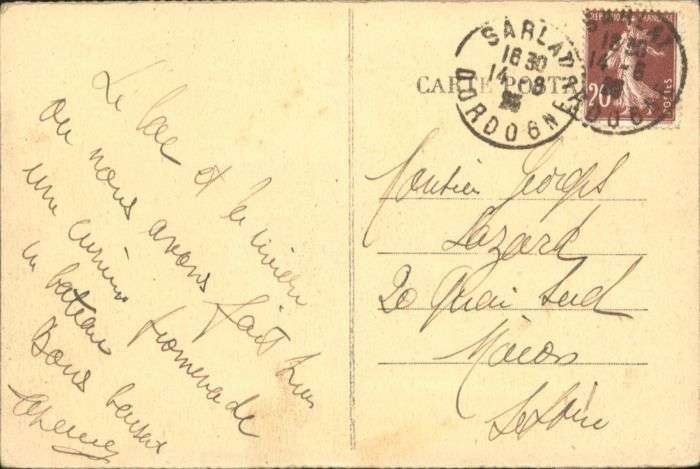 Le lac et la rivière
où nous avons fait hier
une curieuse promenade
en bateau
Bons baisers
CARTE POSTALE
SARLAT
18 30
14 - 8
DORDOGNE
SARLAT
18 30
14 - 8
DORDOGNE
REPUBLIQUE FRANÇAISE
20
POSTES
Monsieur Georges
Lazard
20 Quai Sud
Mâcon
S et Loire